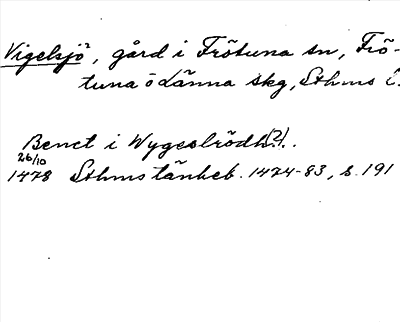 Vigelsjö, gård i Frötuna sn, Frö-
tuna o Länna skg, Sthms l.
Benct i Wygeslrödh(?).
26/10
1478 Sthms tänkeb. 1474-83, s. 191